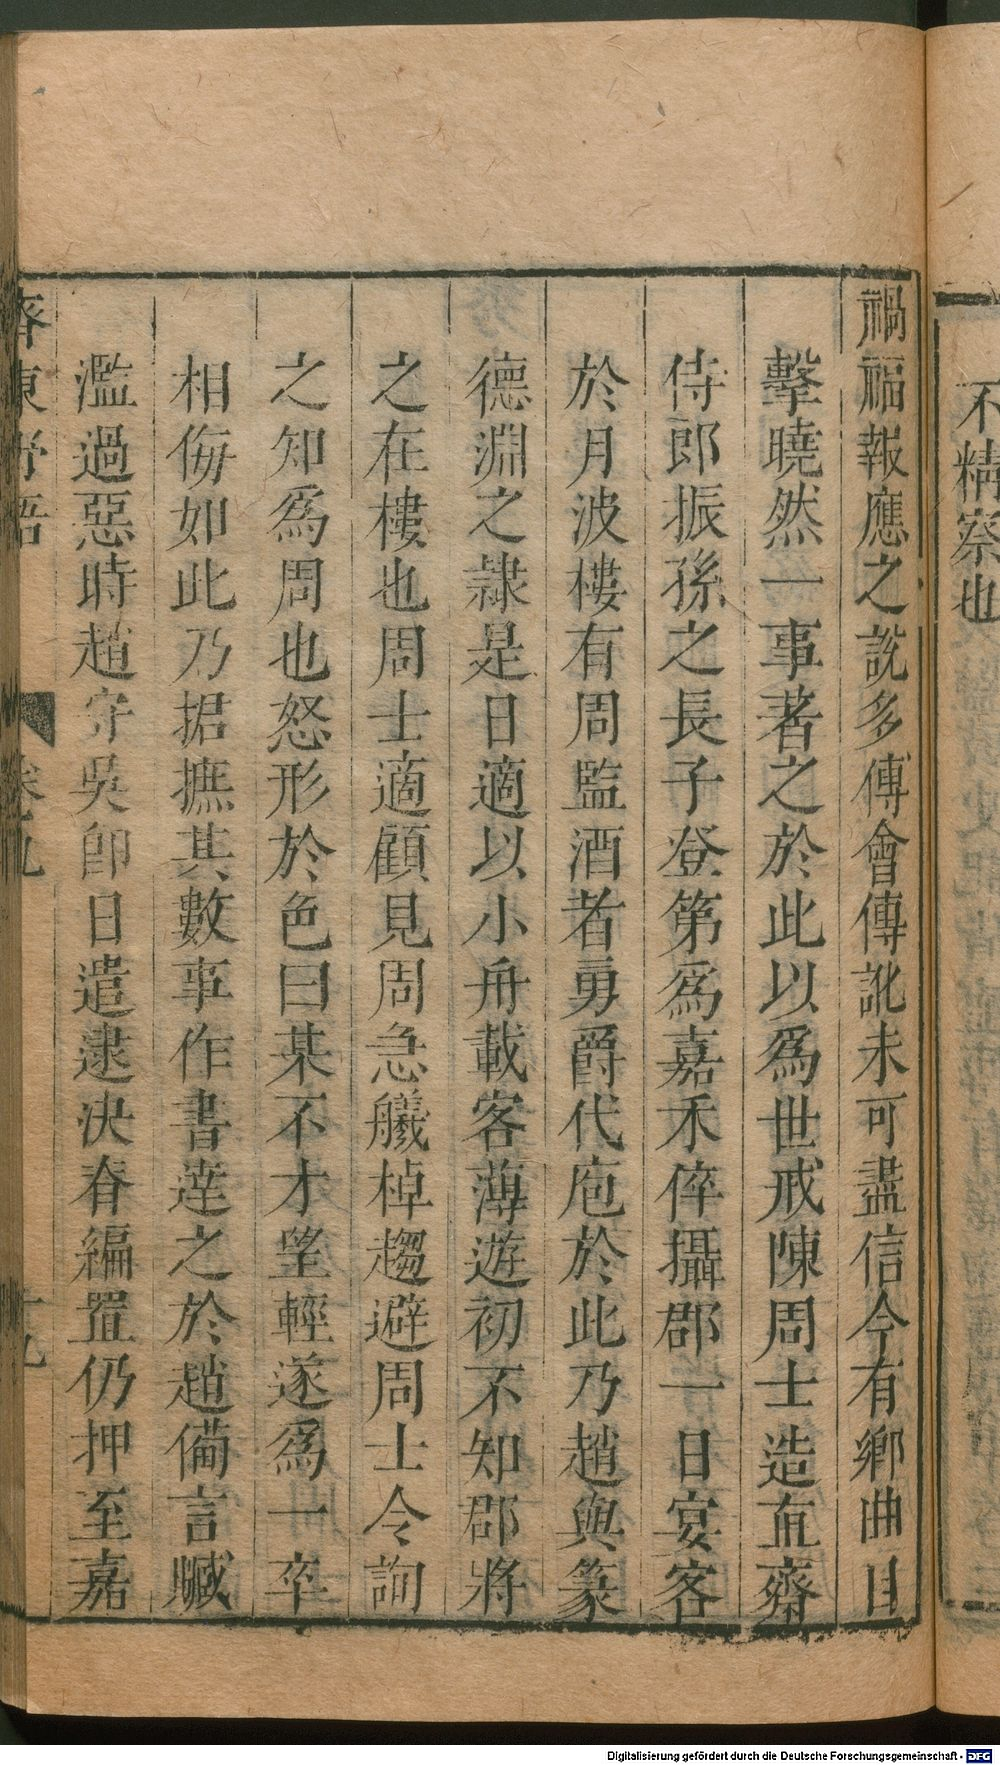 不精察也
禍福報應之說多傳會傳訛未可盡信今有鄉曲目
擊曉然一事著之於此以爲世戒陳周士造直齋
侍郎振孫之長子登第爲嘉禾倅攝郡一日宴客
於月波樓有周監酒者勇爵代庖於此乃趙與篆
德淵之隷是日適以小舟載客薄遊初不知郡將
之在樓也周士適顧見周急艤棹趨避周士令詢
之知爲周也怒形於色曰某不才望輕遂爲一卒
相侮如此乃捃摭其數事作書達之於趙備言贓
濫過惡時趙守吳卽日遣逮決脊編置仍押至嘉
齊東野語
卷九
十九
Digitalisierung gefördert durch die Deutsche Forschungsgemeinschaft - DFG